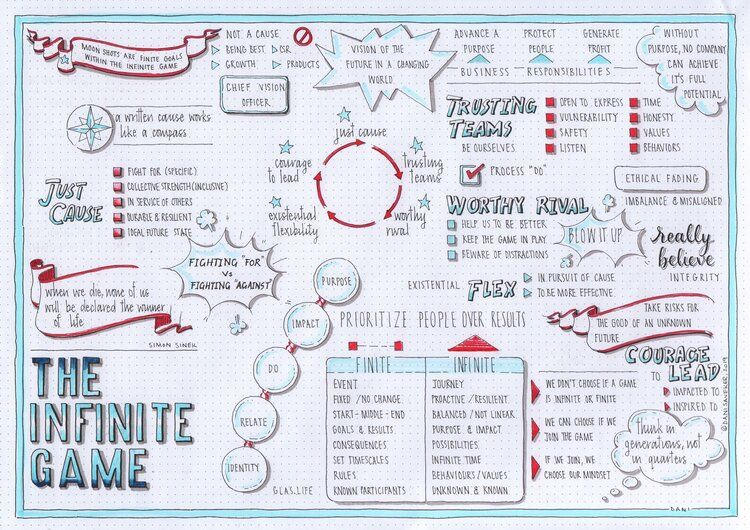 MOON SHOTS ARE FINITE GOALS
WITHIN THE INFINITE GAME
NOT A CAUSE
BEING BEST
CSR
GROWTH
PRODUCTS
CHIEF VISION
OFFICER
VISION OF THE
FUTURE IN A CHANGING
WORLD
ADVANCE A
PURPOSE
PROTECT
PEOPLE
GENERATE
PROFIT
BUSINESS RESPONSIBILITIES
WITHOUT
PURPOSE, NO COMPANY
CAN ACHIEVE
IT'S FULL
POTENTIAL
a written cause works
like a compass
JUST
CAUSE
FIGHT FOR (SPECIFIC)
COLLECTIVE STRENGTH (INCLUSIVE)
IN SERVICE OF OTHERS
DURABLE & RESILIENT
IDEAL FUTURE STATE
just cause
trusting
teams
worthy
rival
existential
flexibility
courage
to lead
TRUSTING
TEAMS
BE OURSELVES
OPEN TO EXPRESS
VULNERABILITY
SAFETY
LISTEN
TIME
HONESTY
VALUES
BEHAVIORS
PROCESS "DO"
ETHICAL FADING
IMBALANCE & MISALIGNED
WORTHY RIVAL
HELP US TO BE BETTER
KEEP THE GAME IN PLAY
BEWARE OF DISTRACTIONS
BLOW IT UP
really
believe
INTEGRITY
EXISTENTIAL FLEX
IN PURSUIT OF CAUSE
TO BE MORE EFFECTIVE
FIGHTING "FOR"
VS
FIGHTING "AGAINST"
when we die, none of us
will be declared the winner
of life
SIMON SINEK
THE
INFINITE
GAME
PURPOSE
IMPACT
DO
RELATE
IDENTITY
GLAS.LIFE
PRIORITIZE PEOPLE OVER RESULTS
FINITE
EVENT
FIXED / NO CHANGE
START-MIDDLE-END
GOALS & RESULTS
CONSEQUENCES
SET TIMESCALES
RULES
KNOWN PARTICIPANTS
INFINITE
JOURNEY
PROACTIVE/RESILIENT
BALANCED / NOT LINEAR
PURPOSE & IMPACT
POSSIBILITIES
INFINITE TIME
BEHAVIOURS/VALUES
UNKNOWN & KNOWN
TAKE RISKS FOR
THE GOOD OF AN UNKNOWN
FUTURE
COURAGE
TO LEAD
IMPACTED TO
INSPIRED TO
WE DON'T CHOOSE IF A GAME
IS INFINITE OR FINITE
WE CAN CHOOSE IF WE
JOIN THE GAME
IF WE JOIN, WE
CHOOSE OUR MINDSET
think in
generations, not
in quarters
DANI